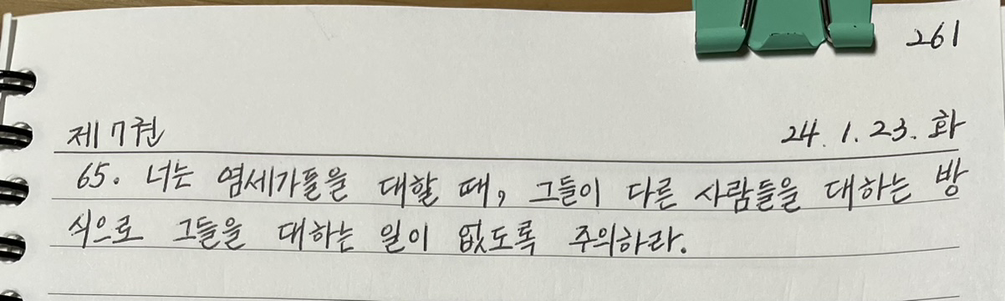 261
제 7권 24. 1. 23. 화
65. 너는 염세가들을 대할 때, 그들이 다른 사람들을 대하는 방
식으로 그들을 대하는 일이 없도록 주의하라.